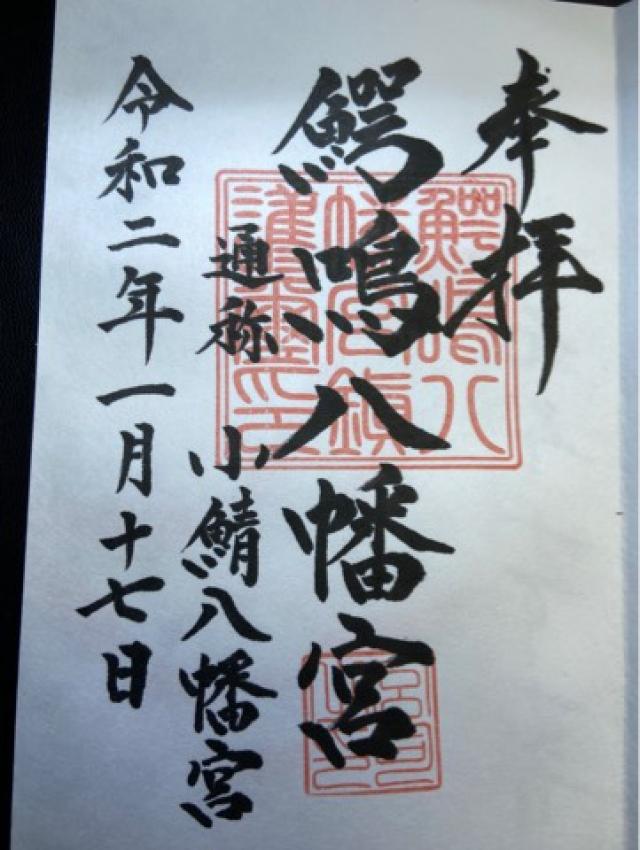 奉拝
鰐鳴八幡宮
通称 小鯖八幡宮
令和二年一月十七日